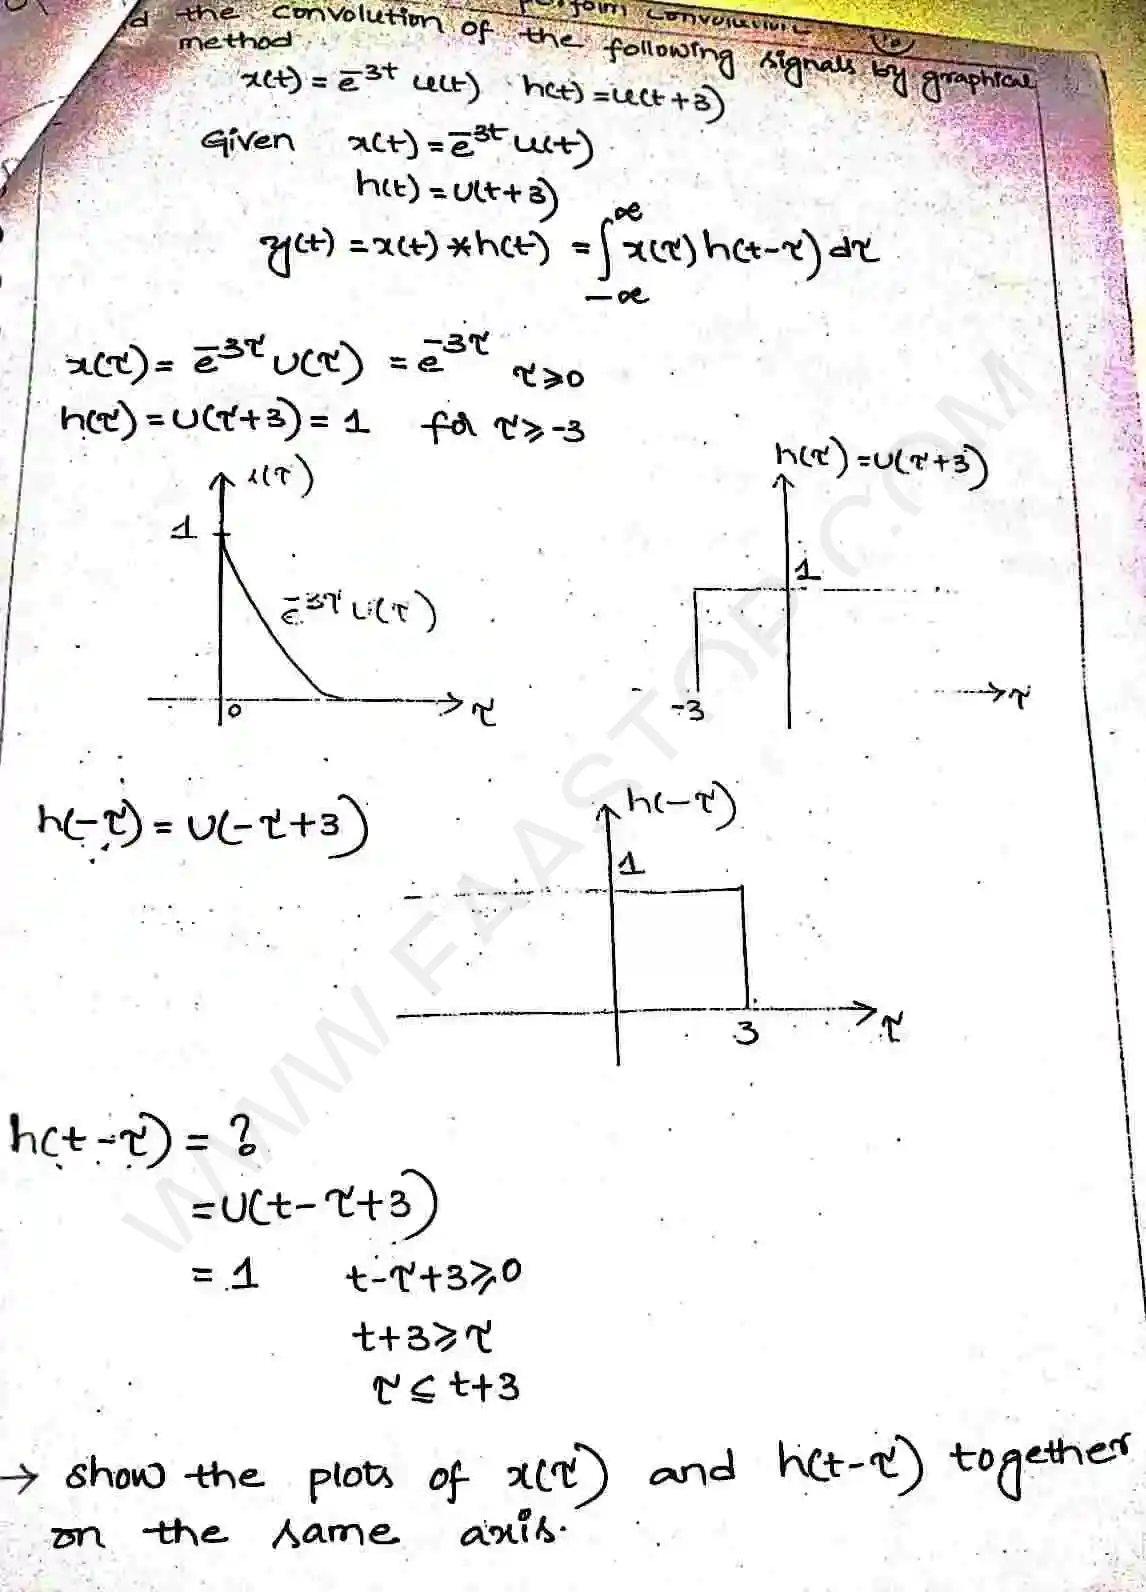 the convolution of the following signals by graphical
method
x(t) = e^-3t u(t) h(t) = u(t+3)
Given x(t) = e^-3t u(t)
h(t) = u(t+3)
y(t) = x(t) * h(t) = ∫_-∞^∞ x(τ) h(t-τ) dτ
x(τ) = e^-3τ u(τ) = e^-3τ τ≥0
h(τ) = u(τ+3) = 1 for τ≥-3
x(τ)
1
e^-3τ u(τ)
0
τ
h(τ) = u(τ+3)
1
-3
τ
h(-τ) = u(-τ+3)
h(-τ)
1
3
τ
h(t-τ) = ?
= u(t-τ+3)
= 1 t-τ+3≥0
t+3≥τ
τ≤t+3
→ show the plots of x(τ) and h(t-τ) together
on the same axis.
WWW.FAASTOP.COM